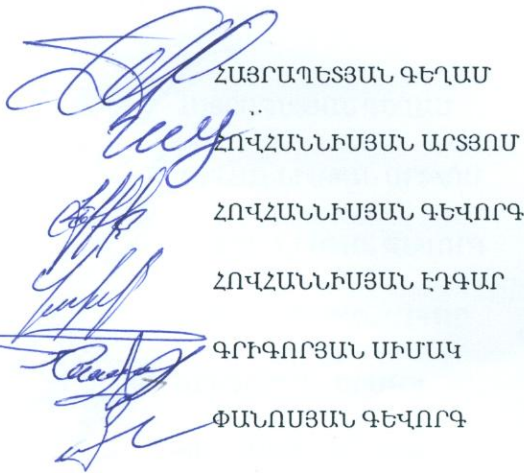 ՀԱՅՐԱՊԵՏՅԱՆ ԳԵՂԱՄ
ՀՈՎՀԱՆՆԻՍՅԱՆ ԱՐՏՅՈՄ
ՀՈՎՀԱՆՆԻՍՅԱՆ ԳԵՎՈՐԳ
ՀՈՎՀԱՆՆԻՍՅԱՆ ԷԴԳԱՐ
ԳՐԻԳՈՐՅԱՆ ՍԻՄԱԿ
ՓԱՆՈՍՅԱՆ ԳԵՎՈՐԳ